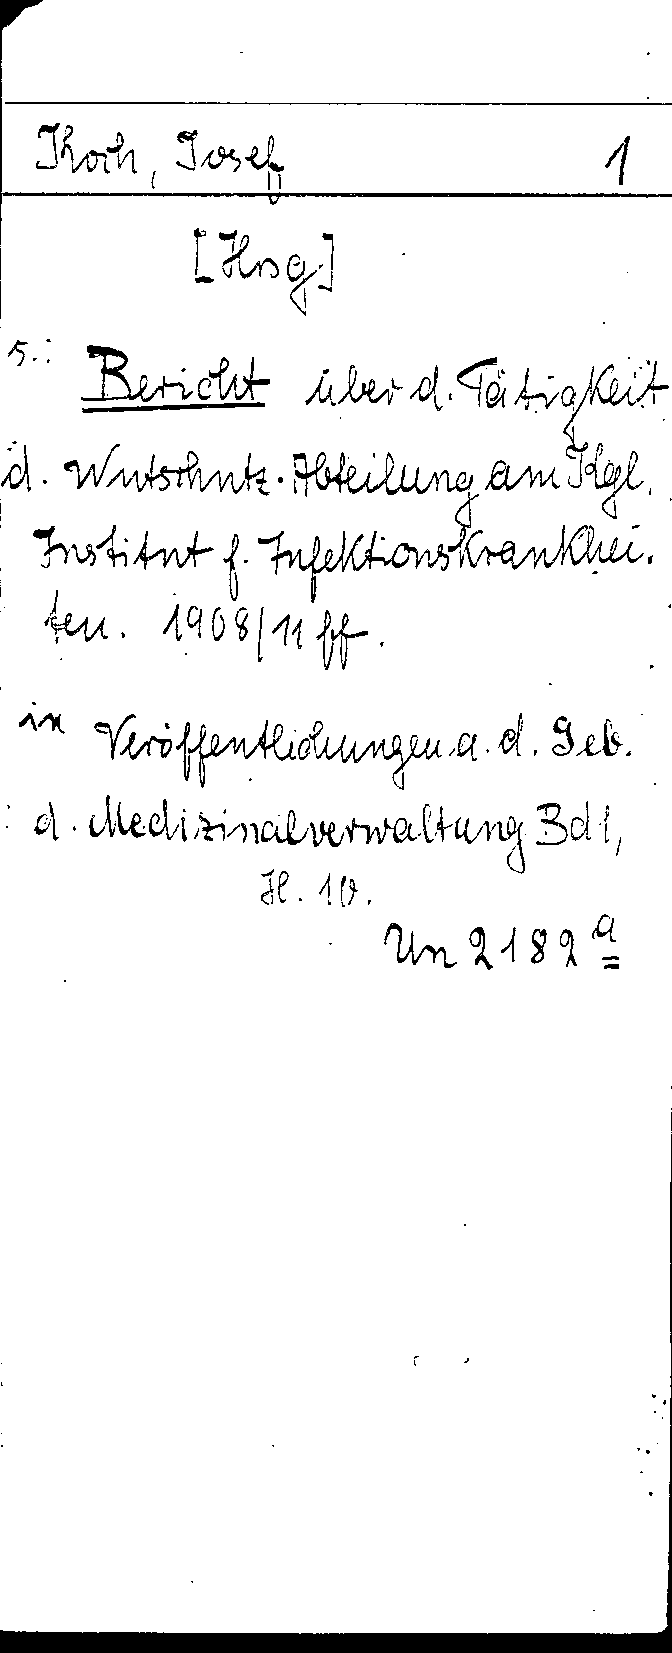 Koch, Josef 1
[Hrsg.]
s.: Bericht über d. Tätigkeit
d. Wutschutz-Abteilung am Kgl.
Institut f. Infektionskrankhei-
ten. 1908/11 ff.
in Veröffentlichungen a. d. Geb.
d. Medizinalverwaltung Bd 1,
H. 10.
Un 2182 a